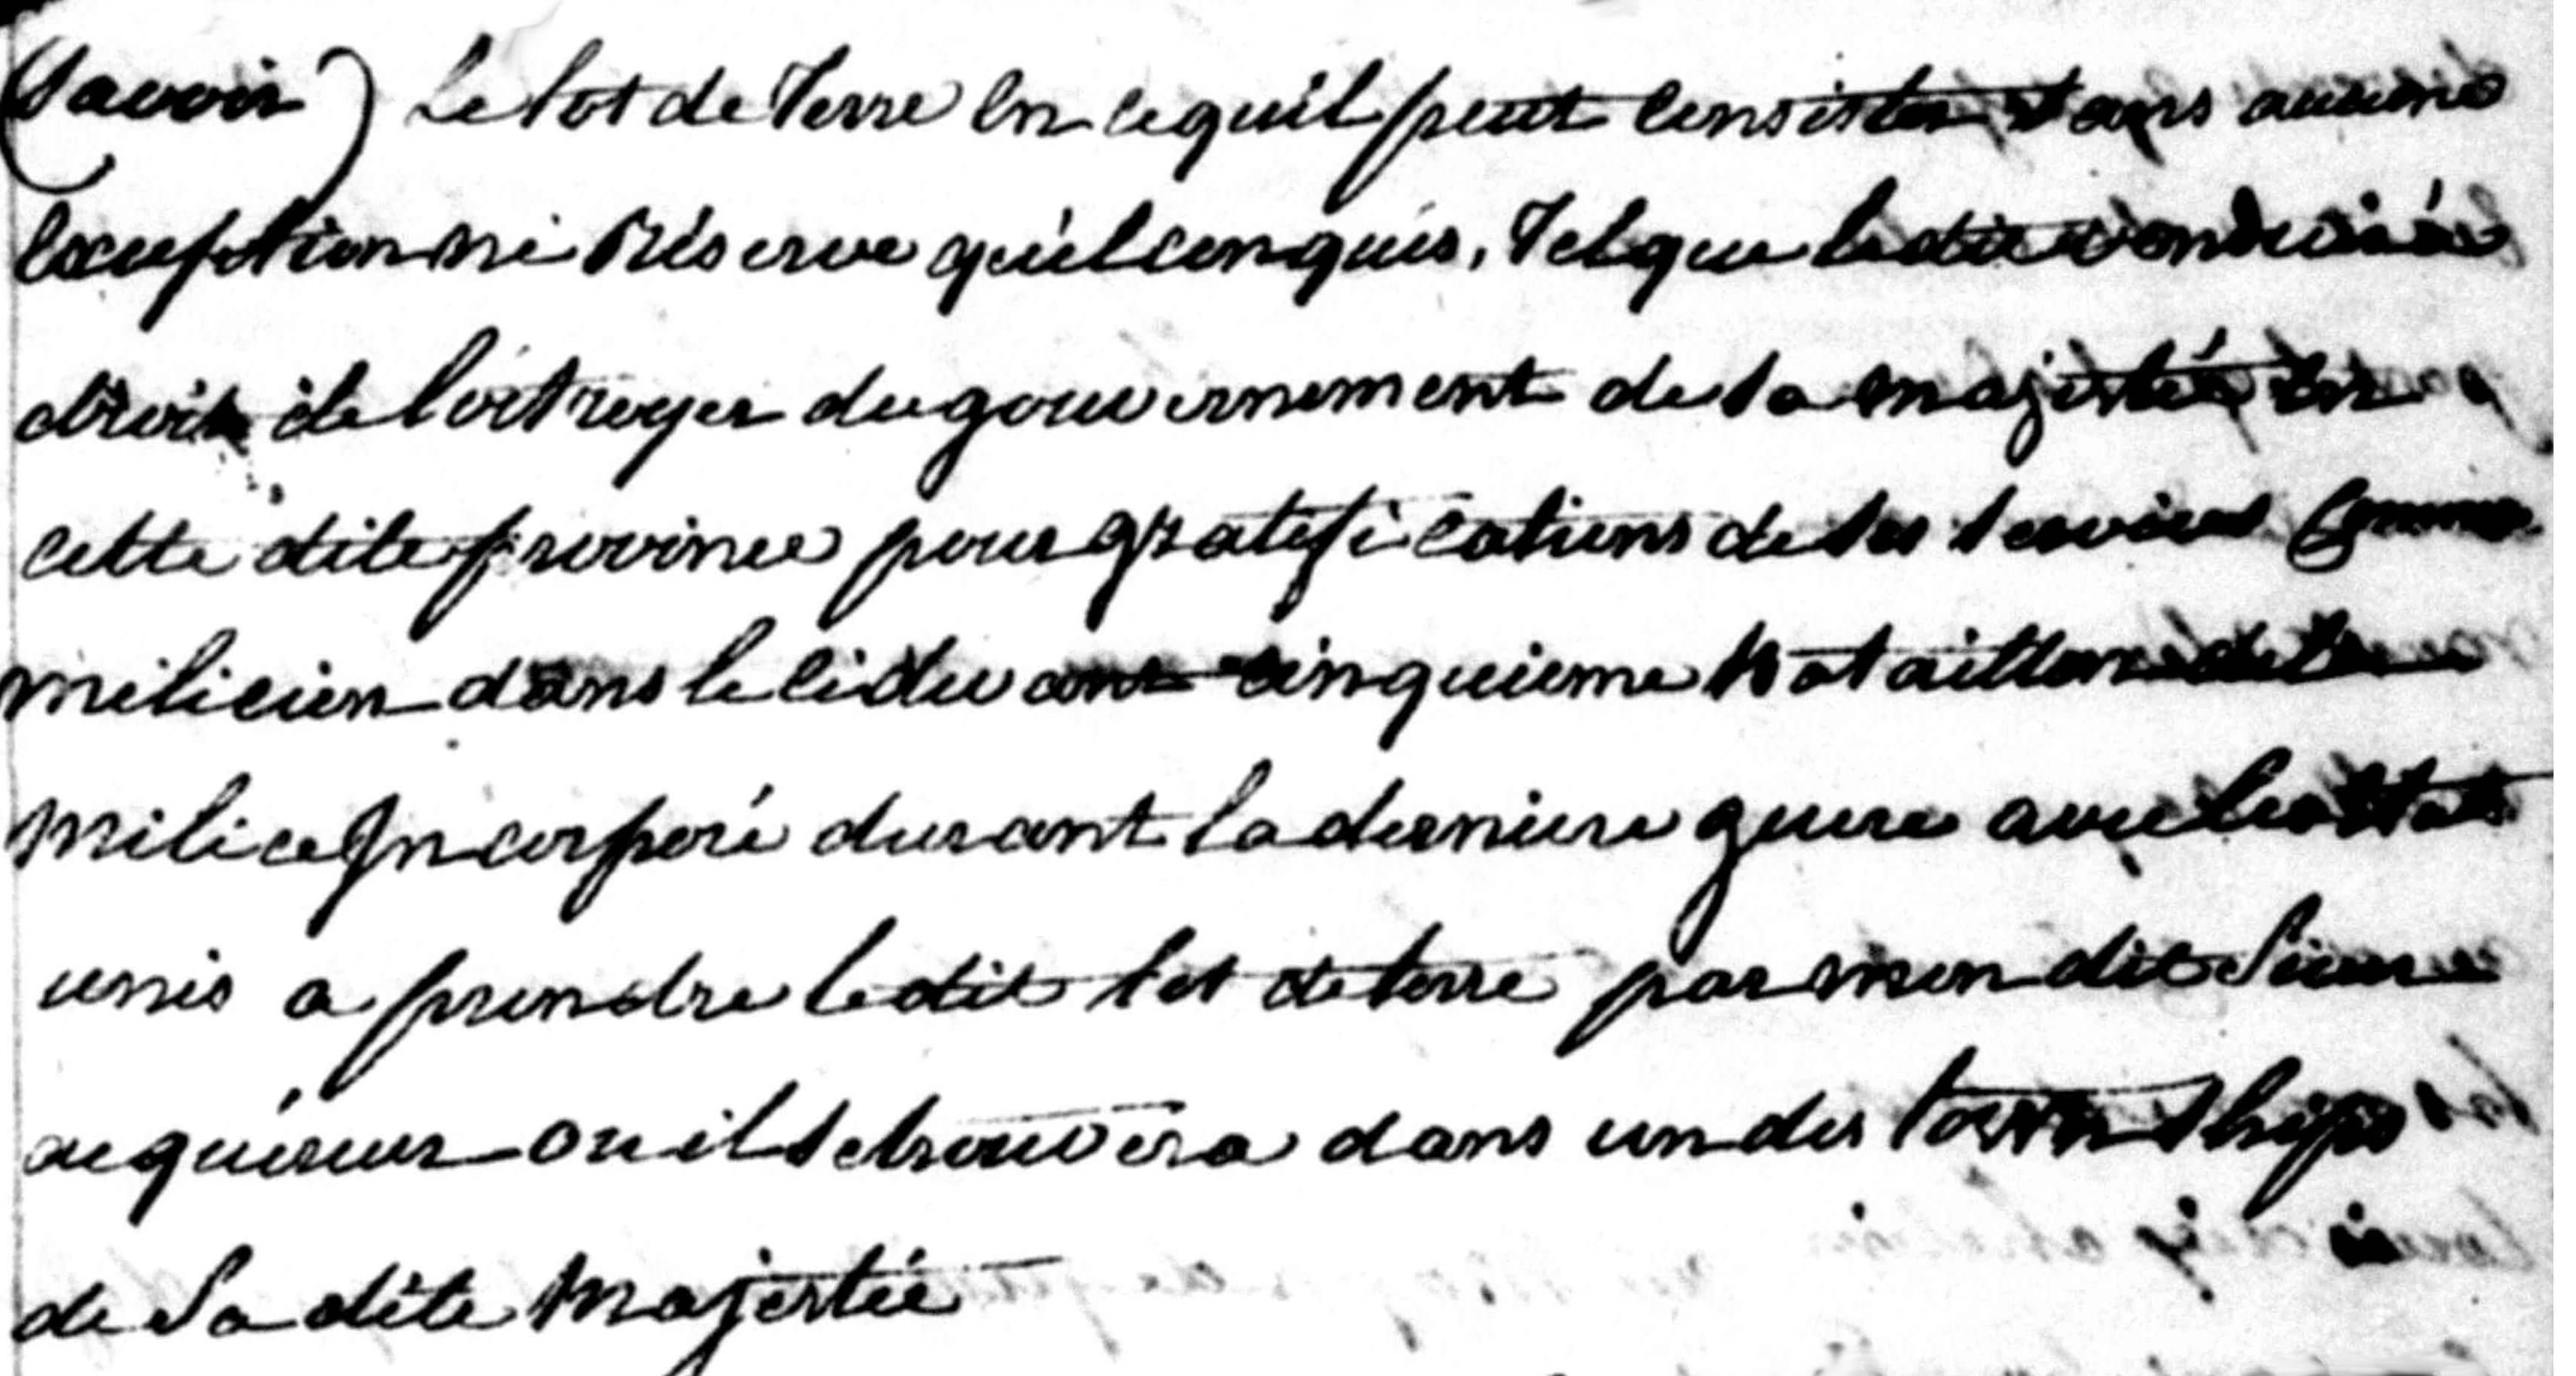 (Savoir) Le lot de Terre En ce quil peut consister sans aucune
Exception ni Réserve quelconques, Tel que le dit vendeur à
droit de loctroyer du gouvernement de sa majestée En
cette dite province pour gratifications de ses services Comme
milicien dans le cidevant cinquieme Bataillon de la
milice Incorporé durant la derniere guerre avec les Etats
unis a prendre le dit lot de terre par mon dit Sieur
acquéreur ou il se trouvera dans un des townships
de Sa dite Majestée